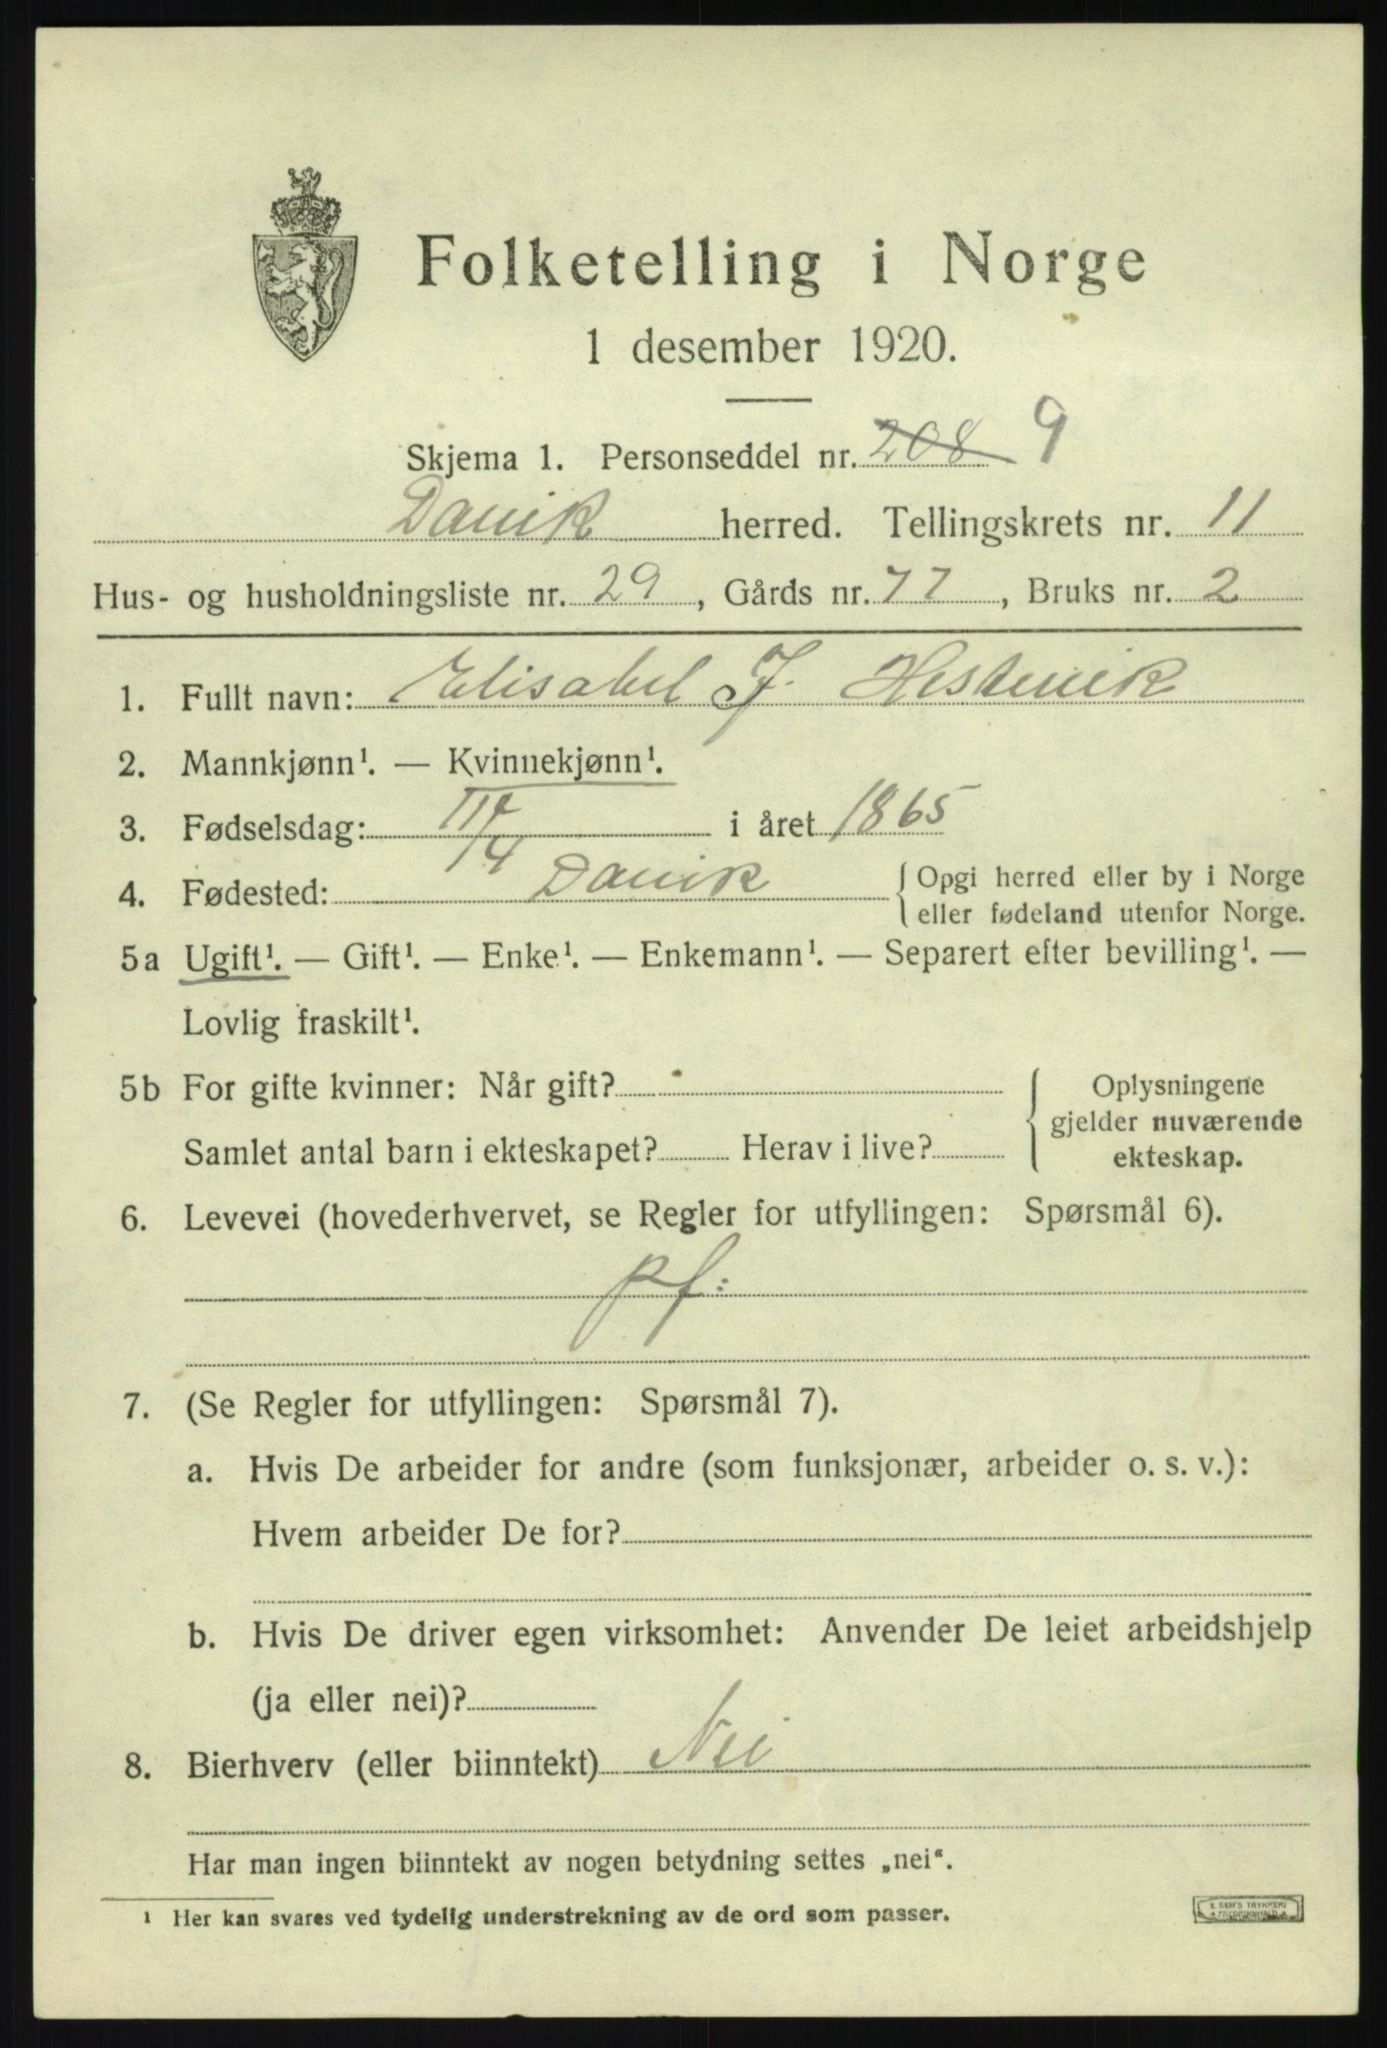 Folketelling i Norge
1 desember 1920.
Skjema 1. Personseddel nr. 208 9
Davik herred. Tellingskrets nr. 11
Hus- og husholdningsliste nr. 29, Gårds nr. 77, Bruks nr. 2
1. Fullt navn: Elisabet J. Hestenik
2. Mannkjønn¹. — Kvinnekjønn¹.
3. Fødselsdag: 11/4 i året 1865
4. Fødested: Davik { Opgi herred eller by i Norge
eller fødeland utenfor Norge.
5a Ugift¹. — Gift¹. — Enke¹. — Enkemann¹. — Separert efter bevilling¹. —
Lovlig fraskilt¹.
5b For gifte kvinner: Når gift? { Oplysningene
gjelder nuværende
Samlet antal barn i ekteskapet? Herav i live? ekteskap.
6. Levevei (hovederhvervet, se Regler for utfyllingen: Spørsmål 6).
pf:
7. (Se Regler for utfyllingen: Spørsmål 7).
a. Hvis De arbeider for andre (som funksjonær, arbeider o. s. v.):
Hvem arbeider De for?
b. Hvis De driver egen virksomhet: Anvender De leiet arbeidshjelp
(ja eller nei)?
8. Bierhverv (eller biinntekt) Nei
Har man ingen biinntekt av nogen betydning settes „nei“.
¹ Her kan svares ved tydelig understrekning av de ord som passer.
E. SEM'S TRYKKERI
FREDRIKSHALD